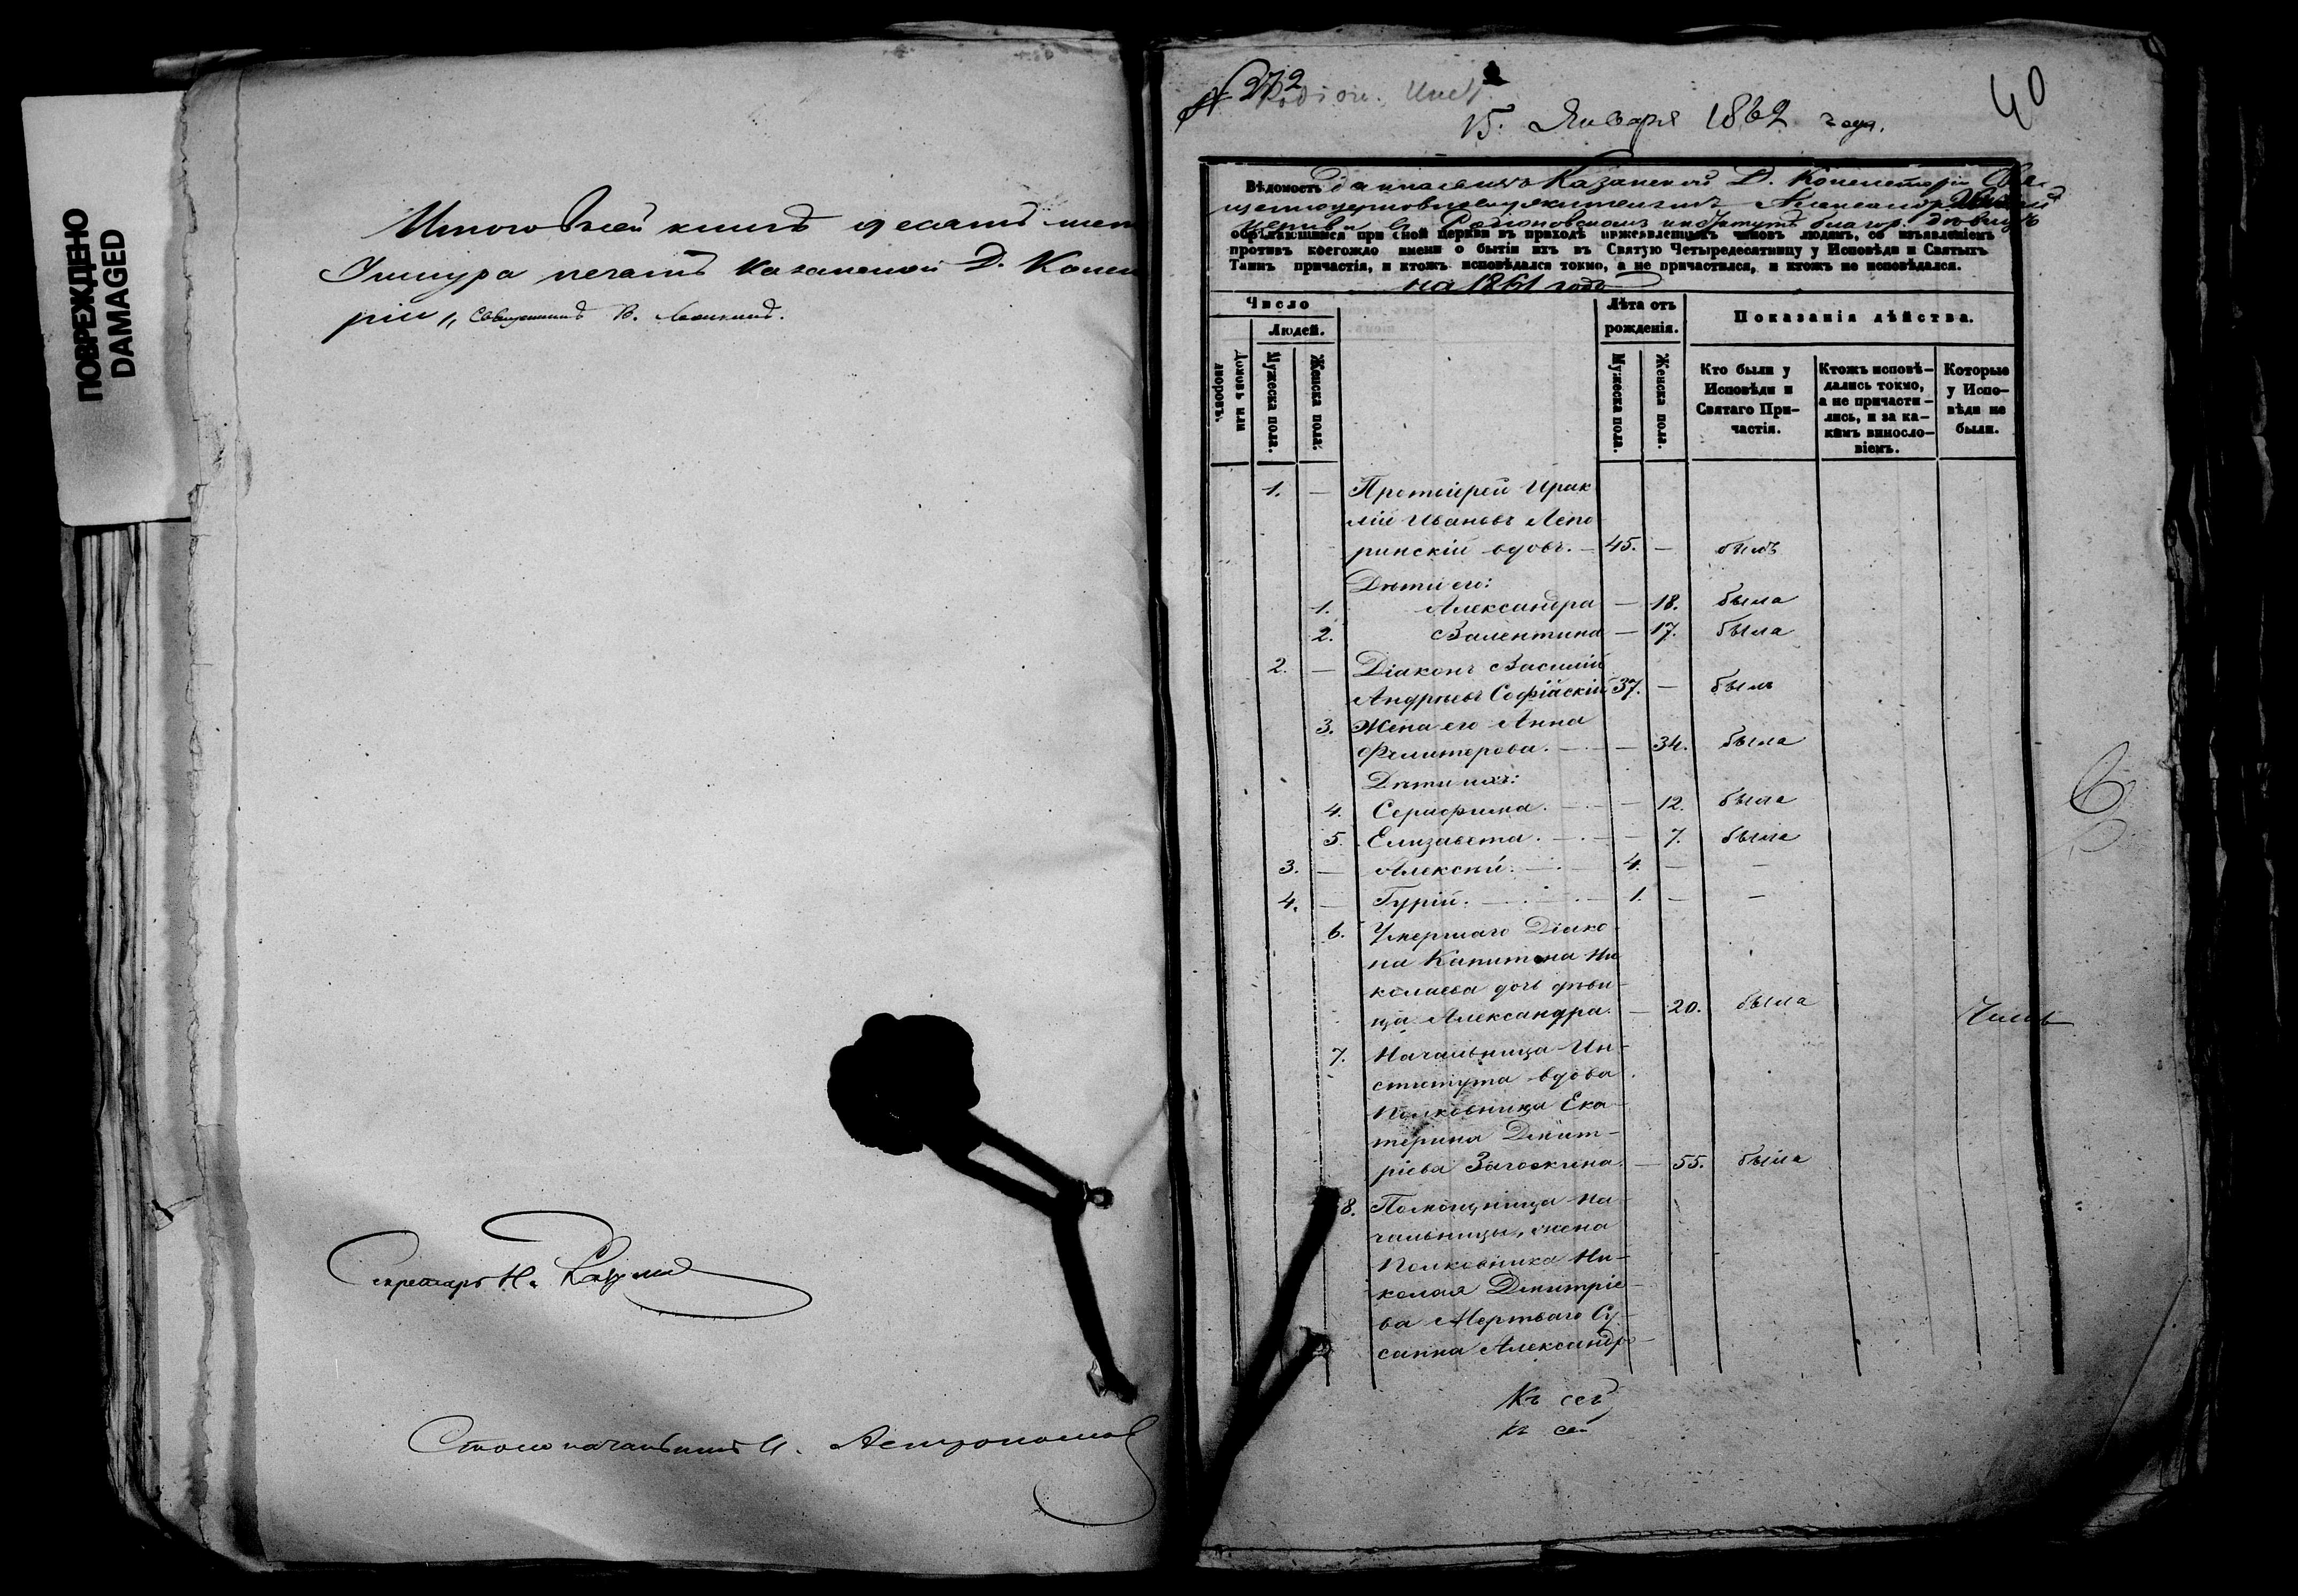 ПОВРЕЖДЕНО
DAMAGED
Итого въ сей книгѣ десять
Шнура печать Казанской Д.
ріи
Секретарь Н.
Столоначальникъ И. Астрономов
№ 272
15. Января 1862 года.
40
Вѣдомость данная изъ Казанской Д. Консисторіи
церкви Родіоновскомъ институтѣ благор. дѣвицъ
обрѣтающимся при сной церкви въ приходѣ нижеявленныхъ чиновъ людямъ, со изъявленіемъ
противъ коегождо имени о бытіи ихъ въ Святую Четыредесятницу у Исповѣди и Святыхъ
Таинъ причастія, и ктожъ исповѣдался токмо, а не причастился, и ктожъ не исповѣдался.
на 1861 годъ
Число
Людей.
Домовъ или дворовъ.
Мужеска пола.
Женска пола.
Лѣта отъ рожденія.
Мужеска пола.
Женска пола.
Показанія дѣйства.
Кто были у Исповѣди и Святаго При-частія.
Ктожъ исповѣ-дались токмо, а не причасти-лись, и за ка-кимъ винословіемъ.
Которые у Испо-вѣди не были.
1. — Протоіерей Ирак
лій Ивановъ Лепо
ринскій вдовъ. — 45. — былъ
Дѣти его:
1. Александра — 18. была
2. Валентина — 17. была
2. — Діаконъ Василій
Андреевъ Софійскій 37. — былъ
3. Жена его Анна
Филитерова. — — 34. была
Дѣти ихъ:
4. Серафима. — — 12. была
5. Елизавета. — — 7. была
3. — Алексѣй. — 4. — —
4. — Гурій. — 1. — —
6. Умершаго Діако
на Капитона Ни
колаева дочь дѣви-
ца Александра. — 20. была
7. Начальница Ин-
ститута вдова
Полковница Ека-
терина Дмит-
ріева Загоскина. — 55. была
8. Помощница На-
чальницы, жена
Полковника Ни-
колая Дмитріе-
ва Мертваго Су-
санна Александр-
Къ сей
Къ сей